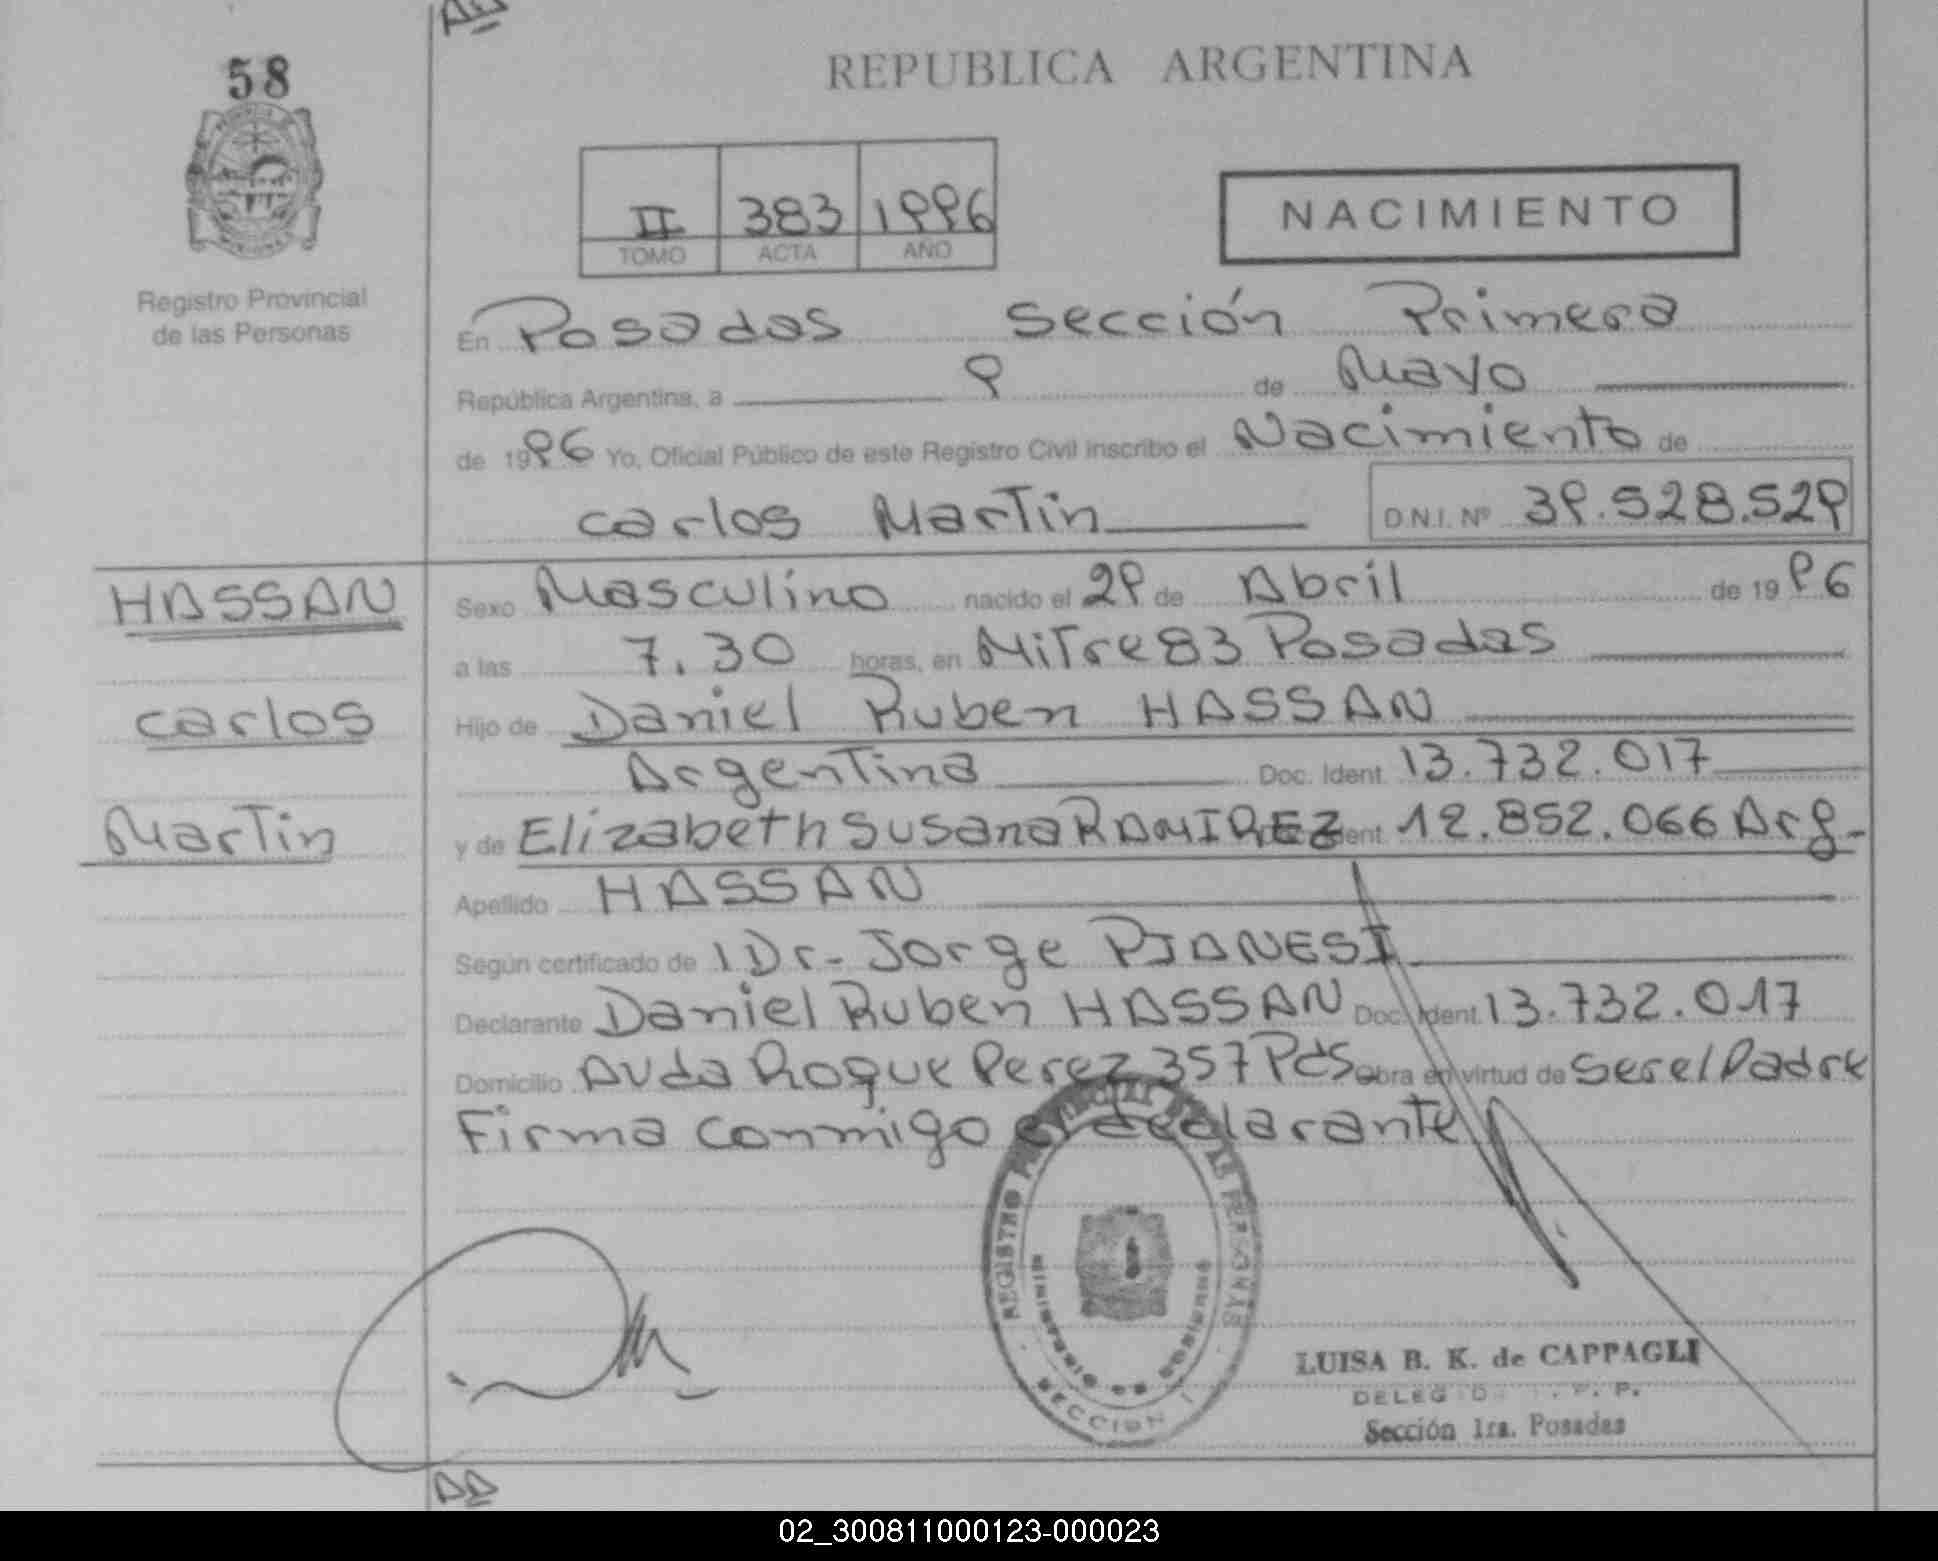 58
REPUBLICA ARGENTINA
II 383 1996
TOMO ACTA AÑO
NACIMIENTO
Registro Provincial
de las Personas
En Posadas Sección Primera
República Argentina, a 9 de Mayo
de 1996 Yo, Oficial Público de este Registro Civil inscribo el Nacimiento de
Carlos Martin D.N.I. Nº 39.528.529
HASSAN
Carlos
Martin
Sexo Masculino nacido el 29 de Abril de 1996
a las 7.30 horas, en Mitre 83 Posadas
Hijo de Daniel Ruben HASSAN
Argentina Doc. Ident. 13.732.017
y de Elizabeth Susana RAMIREZ Ident. 12.852.066 Arg.
Apellido HASSAN
Según certificado de l Dr. Jorge PIANESI
Declarante Daniel Ruben HASSAN Doc. Ident. 13.732.017
Domicilio Avda Roque Perez 357 Pds Obra en virtud de ser el Padre
Firma conmigo el declarante
REGISTRO PROVINCIAL DE LAS PERSONAS
MINISTERIO DE GOBIERNO
SECCION I
LUISA B. K. de CAPPAGLI
Sección 1ra. Posadas
02_300811000123-000023